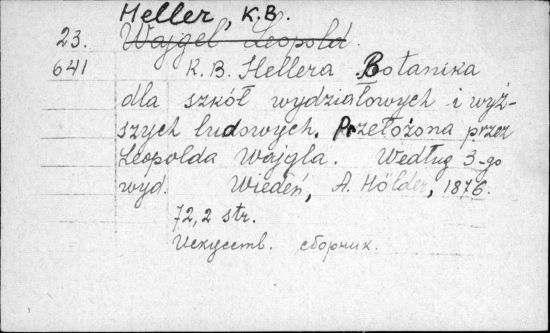 Heller, K.B.
23. Wajgel Leopold.
641 K. B. Hellera Botanika
dla szkół wydziałowych i wyż-
szych ludowych. Przełożona przez
Leopolda Wajgla. Według 3-go
wyd. Wiedeń, A. Hölder, 1876.
72,2 str.
Искусств. сборник.